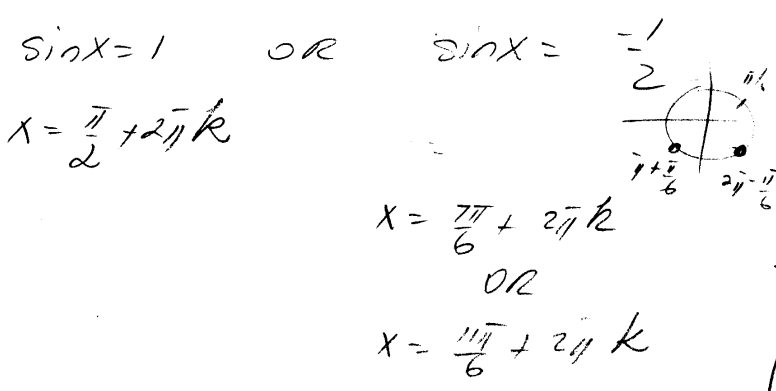 sinx = 1 OR sinx = -1/2
x = π/2 + 2πk
π/6
π + π/6 2π - π/6
x = 7π/6 + 2πk
OR
x = 11π/6 + 2πk